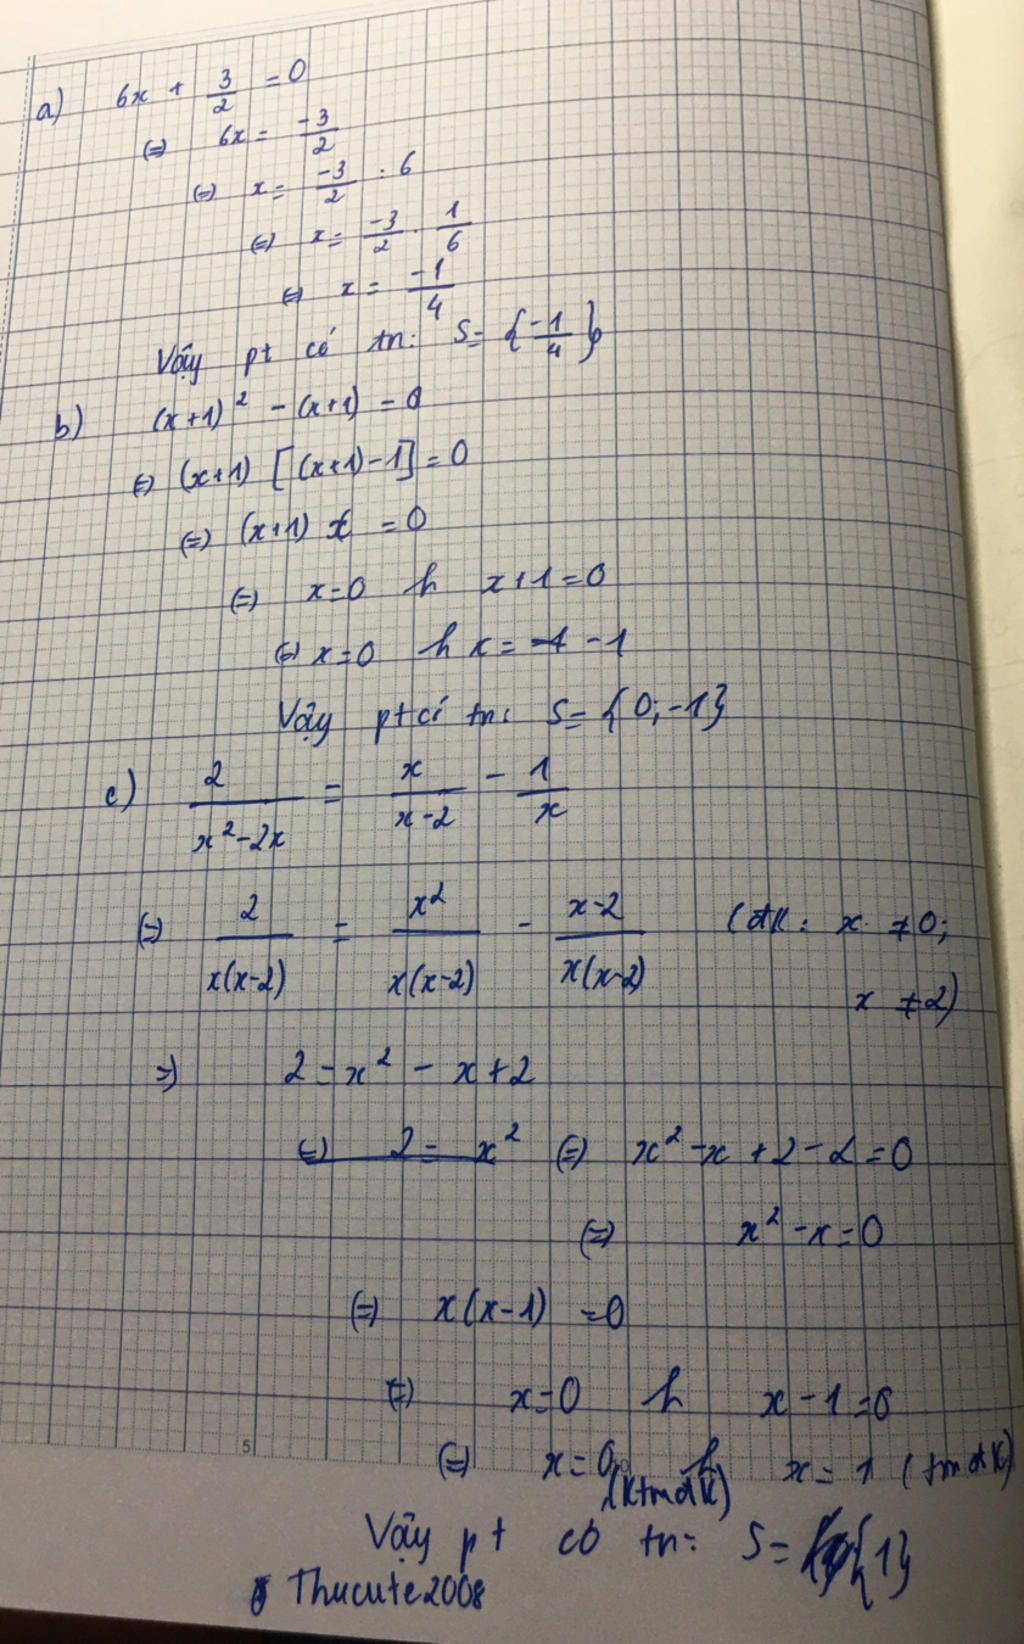 a) 6x + 3/2 = 0
(=) 6x = -3/2
(=) x = -3/2 : 6
(=) x = -3/2 . 1/6
(=) x = -1/4
Vậy pt có tn: S = {-1/4}
b) (x+1)² - (x+1) = 0
(=) (x+1) [(x+1)-1] = 0
(=) (x+1) x = 0
(=) x=0 h x+1=0
(=) x=0 h x = -1
Vậy pt có tn: S = {0; -1}
c) 2/(x²-2x) = x/(x-2) - 1/x
(=) 2/(x(x-2)) = x²/(x(x-2)) - (x-2)/(x(x-2)) (đk: x ≠0;
x ≠2)
=) 2 = x² - x+2
(=) 2 = x² (=) x² -x +2-2=0
(=) x² -x=0
(=) x(x-1) =0
(=) x=0 h x-1=0
(=) x=0 (ktmđk) h x=1 (tmđk)
Vậy pt có tn: S = {1}
Thucute2008
5